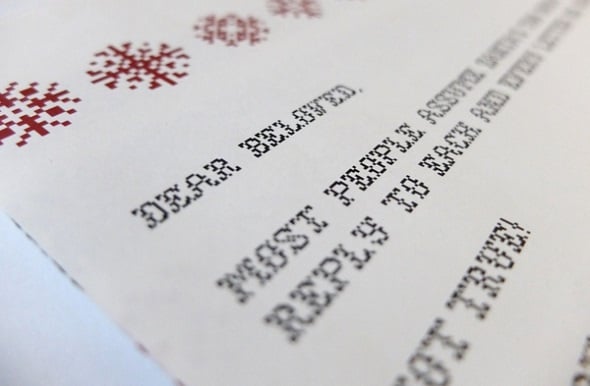 DEAR BELOVED,
MOST PEOPLE ASSUME
REPLY TO EACH AND EVERY LETTER
OT TRUE!